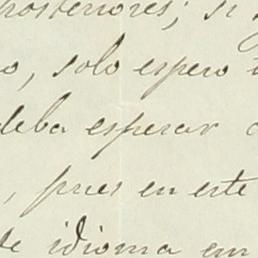 posteriores; si
o, solo espero
deba esperar
, pues en este
de idioma em